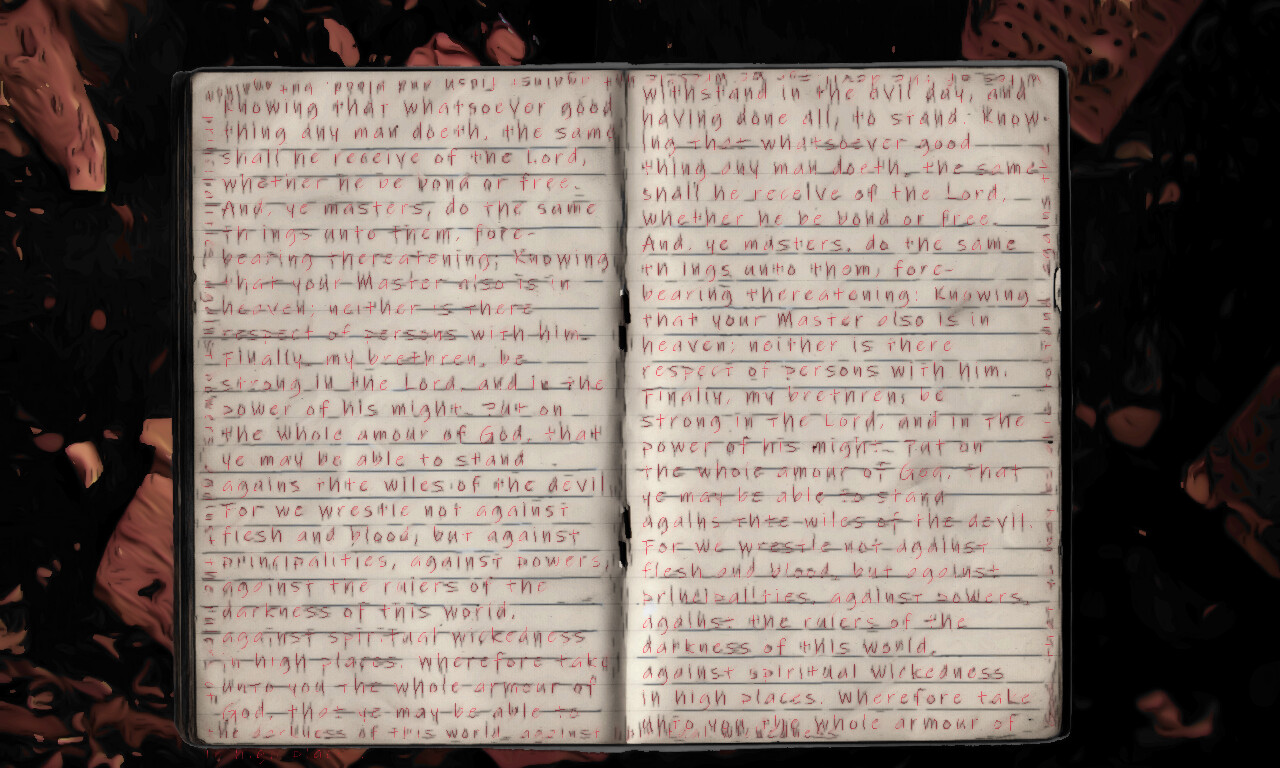 Knowing that whatsoever good
thing any man doeth, the same
shall he receive of the Lord,
whether he be bond or free.
And, ye masters, do the same
things unto them, fore-
bearing thereatening; Knowing
that your Master also is in
heaven; neither is there
respect of persons with him.
Finally, my brethren, be
strong in the Lord, and in the
power of his might. Put on
the whole amour of God, that
ye may be able to stand
agains thte wiles of the devil
For we wrestle not against
flesh and blood, but against
principalities, against powers,
against the rulers of the
darkness of this world,
against spiritual wickedness
in high places. Wherefore take
unto you the whole armour of
God, that ye may be able to
the darkness of this world, against
withstand in the evil day, and
having done all, to stand. Know-
ing that whatsoever good
thing any man doeth, the same
shall he receive of the Lord,
whether he be bond or free.
And, ye masters, do the same
th ings unto them, fore-
bearing thereatening; Knowing
that your Master also is in
heaven; neither is there
respect of persons with him.
Finally, my brethren, be
strong in the Lord, and in the
power of his might. Put on
the whole amour of God, that
ye may be able to stand
agains thte wiles of the devil.
For we wrestle not against
flesh and blood, but against
principalities, against powers,
against the rulers of the
darkness of this world,
against spiritual wickedness
in high places. Wherefore take
unto you the whole armour of